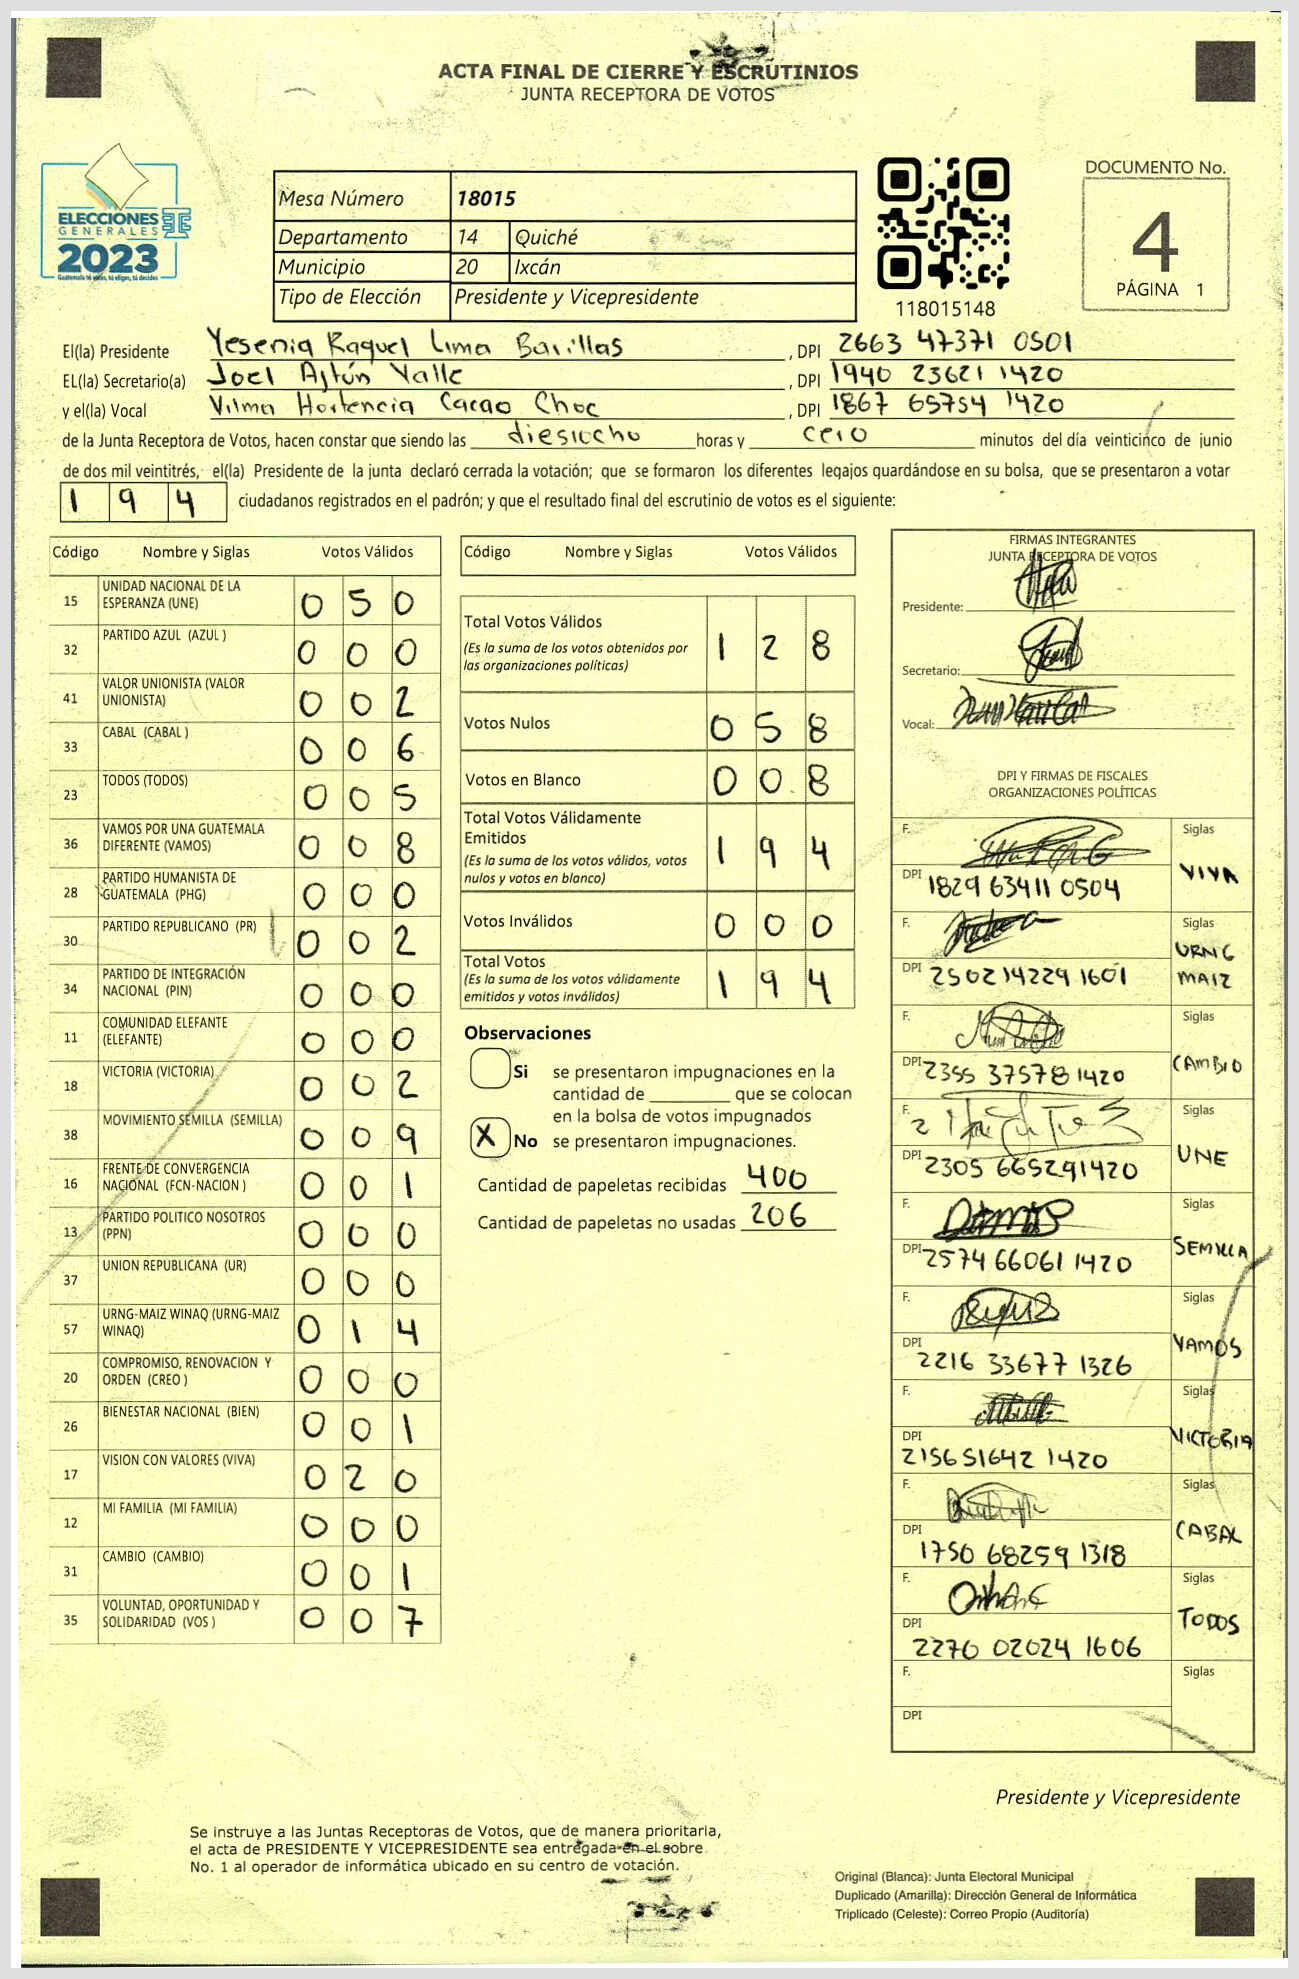 ACTA FINAL DE CIERRE Y ESCRUTINIOS
JUNTA RECEPTORA DE VOTOS
ELECCIONES
GENERALES
2023
Guatemala tú votas, tú eliges, tú decides
Mesa Número 18015
Departamento 14 Quiché
Municipio 20 Ixcán
Tipo de Elección Presidente y Vicepresidente
118015148
DOCUMENTO No.
4
PÁGINA 1
El(la) Presidente Yesenia Raquel Lima Barillas , DPI 2663 47371 0501
EL(la) Secretario(a) Joel Ajtún Valle , DPI 1940 23621 1420
y el(la) Vocal Vilma Hortencia Cacao Choc , DPI 1867 65754 1420
de la Junta Receptora de Votos, hacen constar que siendo las diesiocho horas y cero minutos del día veinticinco de junio
de dos mil veintitrés, el(la) Presidente de la junta declaró cerrada la votación; que se formaron los diferentes legajos guardándose en su bolsa, que se presentaron a votar
1 9 4 ciudadanos registrados en el padrón; y que el resultado final del escrutinio de votos es el siguiente:
Código Nombre y Siglas Votos Válidos
15 UNIDAD NACIONAL DE LA ESPERANZA (UNE) 0 5 0
32 PARTIDO AZUL (AZUL ) 0 0 0
41 VALOR UNIONISTA (VALOR UNIONISTA) 0 0 2
33 CABAL (CABAL ) 0 0 6
23 TODOS (TODOS) 0 0 5
36 VAMOS POR UNA GUATEMALA DIFERENTE (VAMOS) 0 0 8
28 PARTIDO HUMANISTA DE GUATEMALA (PHG) 0 0 0
30 PARTIDO REPUBLICANO (PR) 0 0 2
34 PARTIDO DE INTEGRACIÓN NACIONAL (PIN) 0 0 0
11 COMUNIDAD ELEFANTE (ELEFANTE) 0 0 0
18 VICTORIA (VICTORIA) 0 0 2
38 MOVIMIENTO SEMILLA (SEMILLA) 0 0 9
16 FRENTE DE CONVERGENCIA NACIONAL (FCN-NACION ) 0 0 1
13 PARTIDO POLITICO NOSOTROS (PPN) 0 0 0
37 UNION REPUBLICANA (UR) 0 0 0
57 URNG-MAIZ WINAQ (URNG-MAIZ WINAQ) 0 1 4
20 COMPROMISO, RENOVACION Y ORDEN (CREO ) 0 0 0
26 BIENESTAR NACIONAL (BIEN) 0 0 1
17 VISION CON VALORES (VIVA) 0 2 0
12 MI FAMILIA (MI FAMILIA) 0 0 0
31 CAMBIO (CAMBIO) 0 0 1
35 VOLUNTAD, OPORTUNIDAD Y SOLIDARIDAD (VOS ) 0 0 7
Código Nombre y Siglas Votos Válidos
Total Votos Válidos 1 2 8
(Es la suma de los votos obtenidos por
las organizaciones políticas)
Votos Nulos 0 5 8
Votos en Blanco 0 0 8
Total Votos Válidamente
Emitidos 1 9 4
(Es la suma de los votos válidos, votos
nulos y votos en blanco)
Votos Inválidos 0 0 0
Total Votos 1 9 4
(Es la suma de los votos válidamente
emitidos y votos inválidos)
Observaciones
Si se presentaron impugnaciones en la
cantidad de ________ que se colocan
en la bolsa de votos impugnados
X No se presentaron impugnaciones.
Cantidad de papeletas recibidas 400
Cantidad de papeletas no usadas 206
FIRMAS INTEGRANTES
JUNTA RECEPTORA DE VOTOS
Presidente:
Secretario:
Vocal:
DPI Y FIRMAS DE FISCALES
ORGANIZACIONES POLÍTICAS
F. Siglas
DPI 1829 63411 0504 VIVA
F. Siglas
DPI 2502 14229 1601 URNG MAIZ
F. Siglas
DPI 2355 37578 1420 CAMBIO
F. Siglas
DPI 2305 66529 1420 UNE
F. Siglas
DPI 2574 66061 1420 SEMILLA
F. Siglas
DPI 2216 33677 1326 VAMOS
F. Siglas
DPI 2156 51642 1420 VICTORIA
F. Siglas
DPI 1750 68259 1318 CABAL
F. Siglas
DPI 2270 02024 1606 TODOS
F. Siglas
DPI
Presidente y Vicepresidente
Se instruye a las Juntas Receptoras de Votos, que de manera prioritaria,
el acta de PRESIDENTE Y VICEPRESIDENTE sea entregada en el sobre
No. 1 al operador de informática ubicado en su centro de votación.
Original (Blanca): Junta Electoral Municipal
Duplicado (Amarilla): Dirección General de Informática
Triplicado (Celeste): Correo Propio (Auditoría)